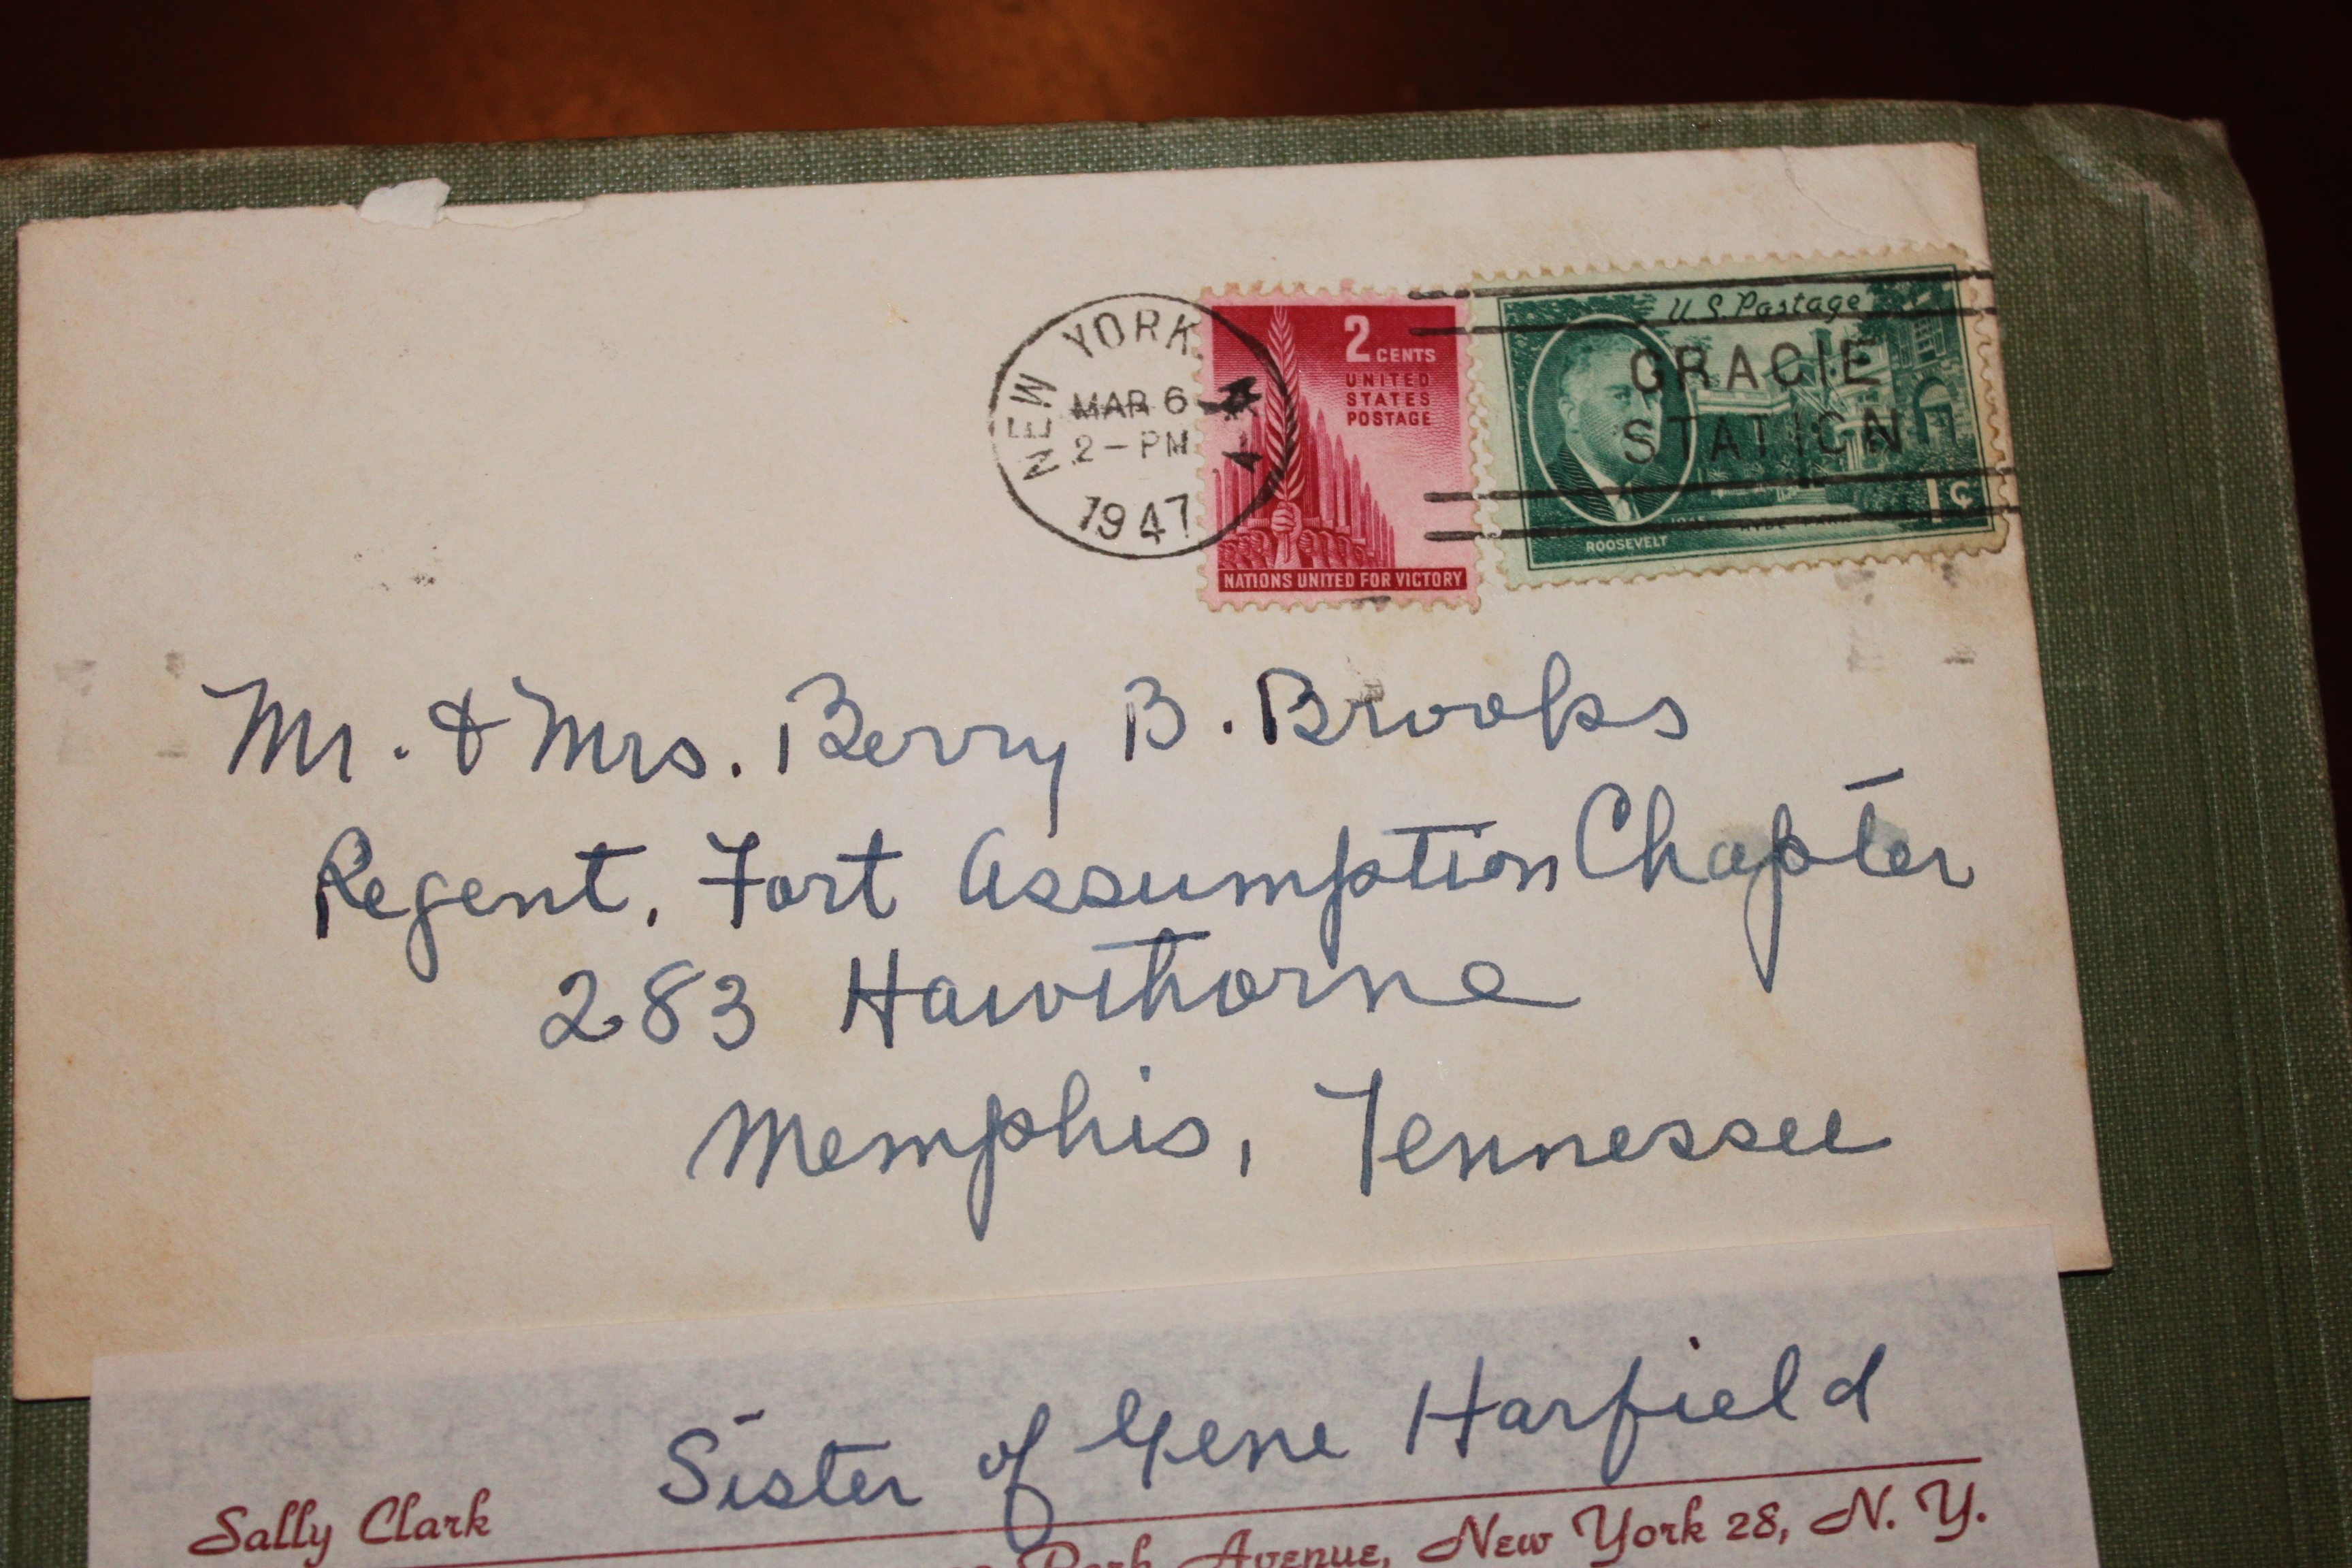 NEW YORK, N.Y.
MAR 6
2-PM
1947
2 CENTS
UNITED
STATES
POSTAGE
NATIONS UNITED FOR VICTORY
U.S. Postage
GRACIE
STATION
HYDE PARK
1¢
ROOSEVELT
Mr. & Mrs. Berry B. Brooks
Regent, Fort Assumption Chapter
283 Hawthorne
Memphis, Tennessee
Sister of Gene Harfield
Sally Clark
Park Avenue, New York 28, N. Y.